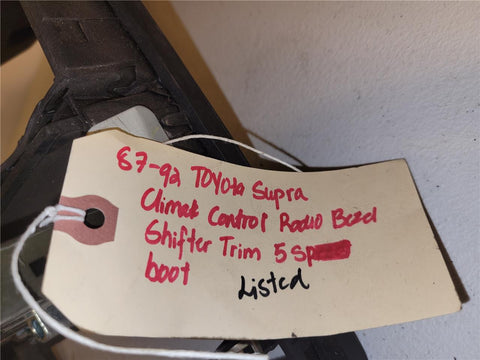 87-92 TOYOta Supra
Climat Control Radio Bezel
Shifter Trim 5 sp
boot
Listed